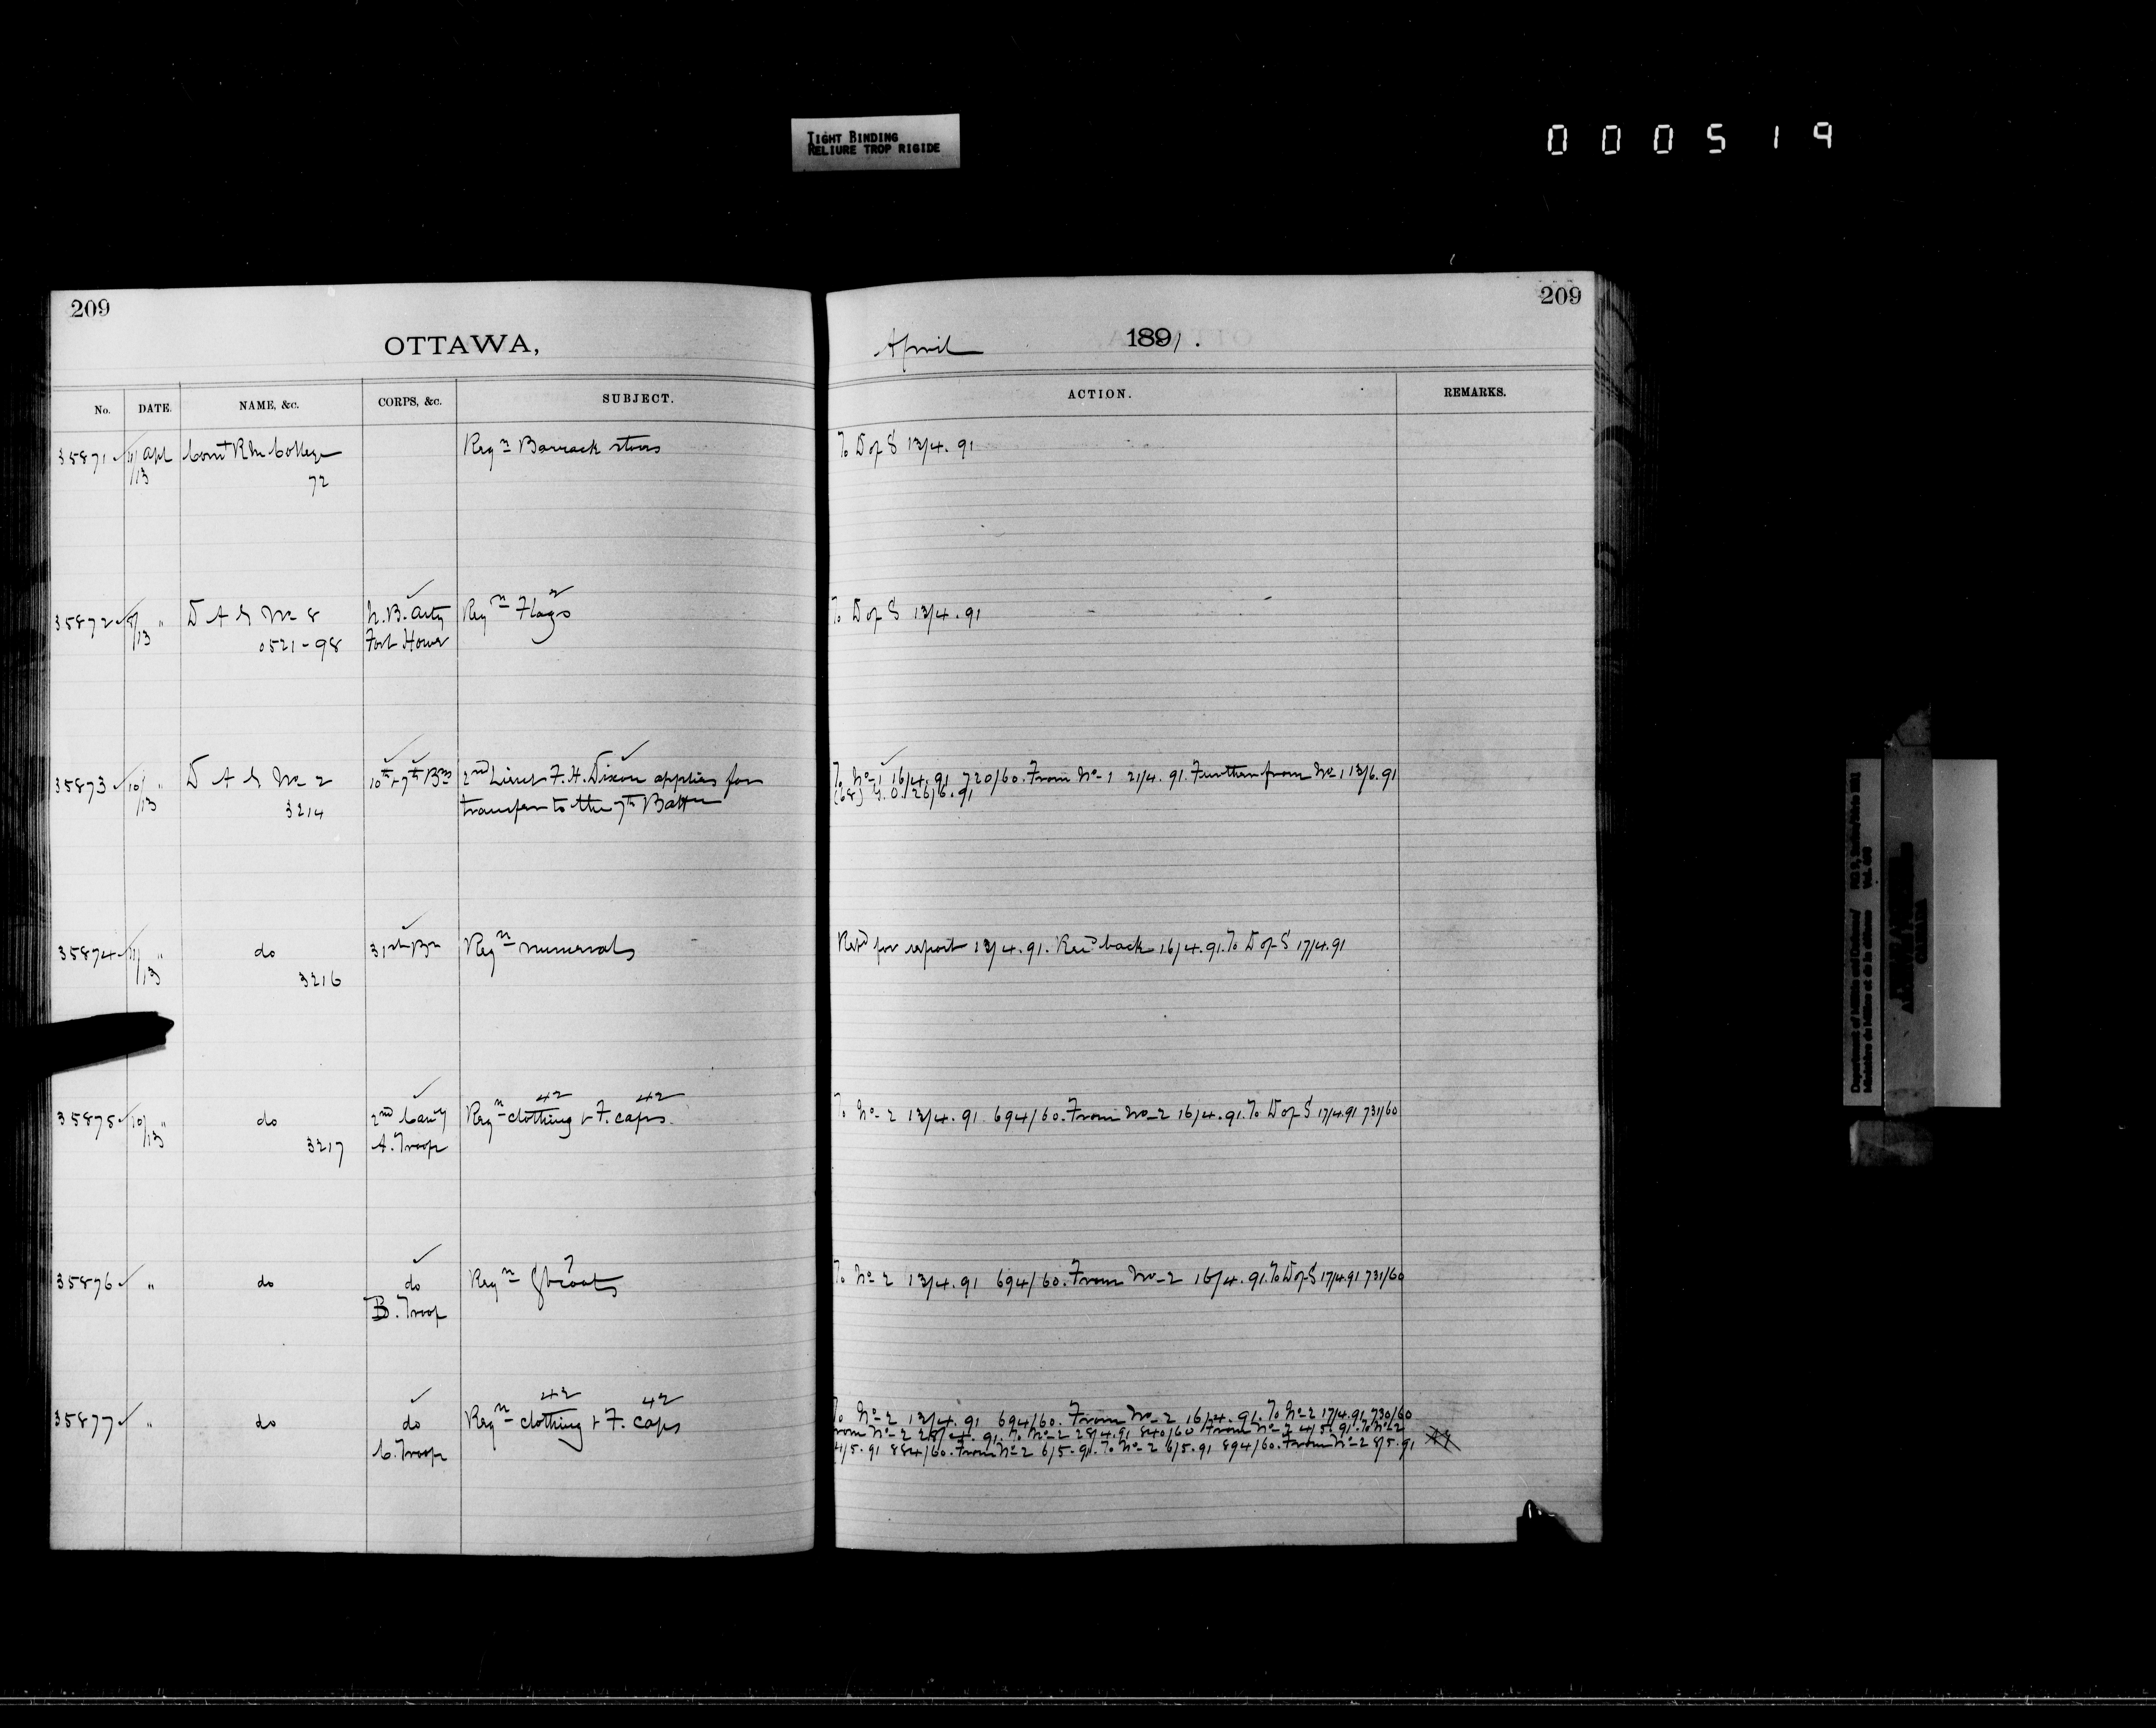 TIGHT BINDING
RELIURE TROP RIGIDE
000519
209
209
OTTAWA,
April 1891.
No. DATE. NAME, &c. CORPS, &c. SUBJECT. ACTION. REMARKS.
35871 11/13 Apl Comt R M College Reqn Barrack stores To D of S 13/4.91
72
35872 8/13 " D A G No 8 N.B. Arty Reqn Flags To D of S 13/4.91
0521-98 Fort Howe
35873 10/13 " D A G No 2 10th & 7th Bns 2nd Lieut F. H. Dixon applies for To No 1 16/4.91 720/60. From No 1 21/4.91. Further from No 1 13/6.91
3214 transfer to the 7th Battn (68) G.O. 26/6.91
35874 11/13 " do 31st Bn Reqn numerals Retd for report 13/4.91. Recd back 16/4.91. To D of S 17/4.91
3216
35875 10/13 " do 2nd Cavy Reqn clothing & F. caps. To No 2 13/4.91 694/60. From No 2 16/4.91. To D of S 17/4.91 731/60
42 42
3217 A. Troop
35876 " do do Reqn To No 2 13/4.91 694/60. From No 2 16/4.91. To D of S 17/4.91 731/60
B. Troop
35877 " do do Reqn clothing & F. Caps To No 2 13/4.91 694/60. From No 2 16/4.91. To No 2 17/4.91 730/60
42 42
From No 2 28/4.91. To No 2 28/4.91 840/60 From No 2 4/5.91. To No 2
C. Troop 4/5.91 884/60. From No 2 6/5.91. To No 2 6/5.91 894/60. From No 2 8/5.91
Department of Militia and Defence
Ministère de la Milice et de la Défense